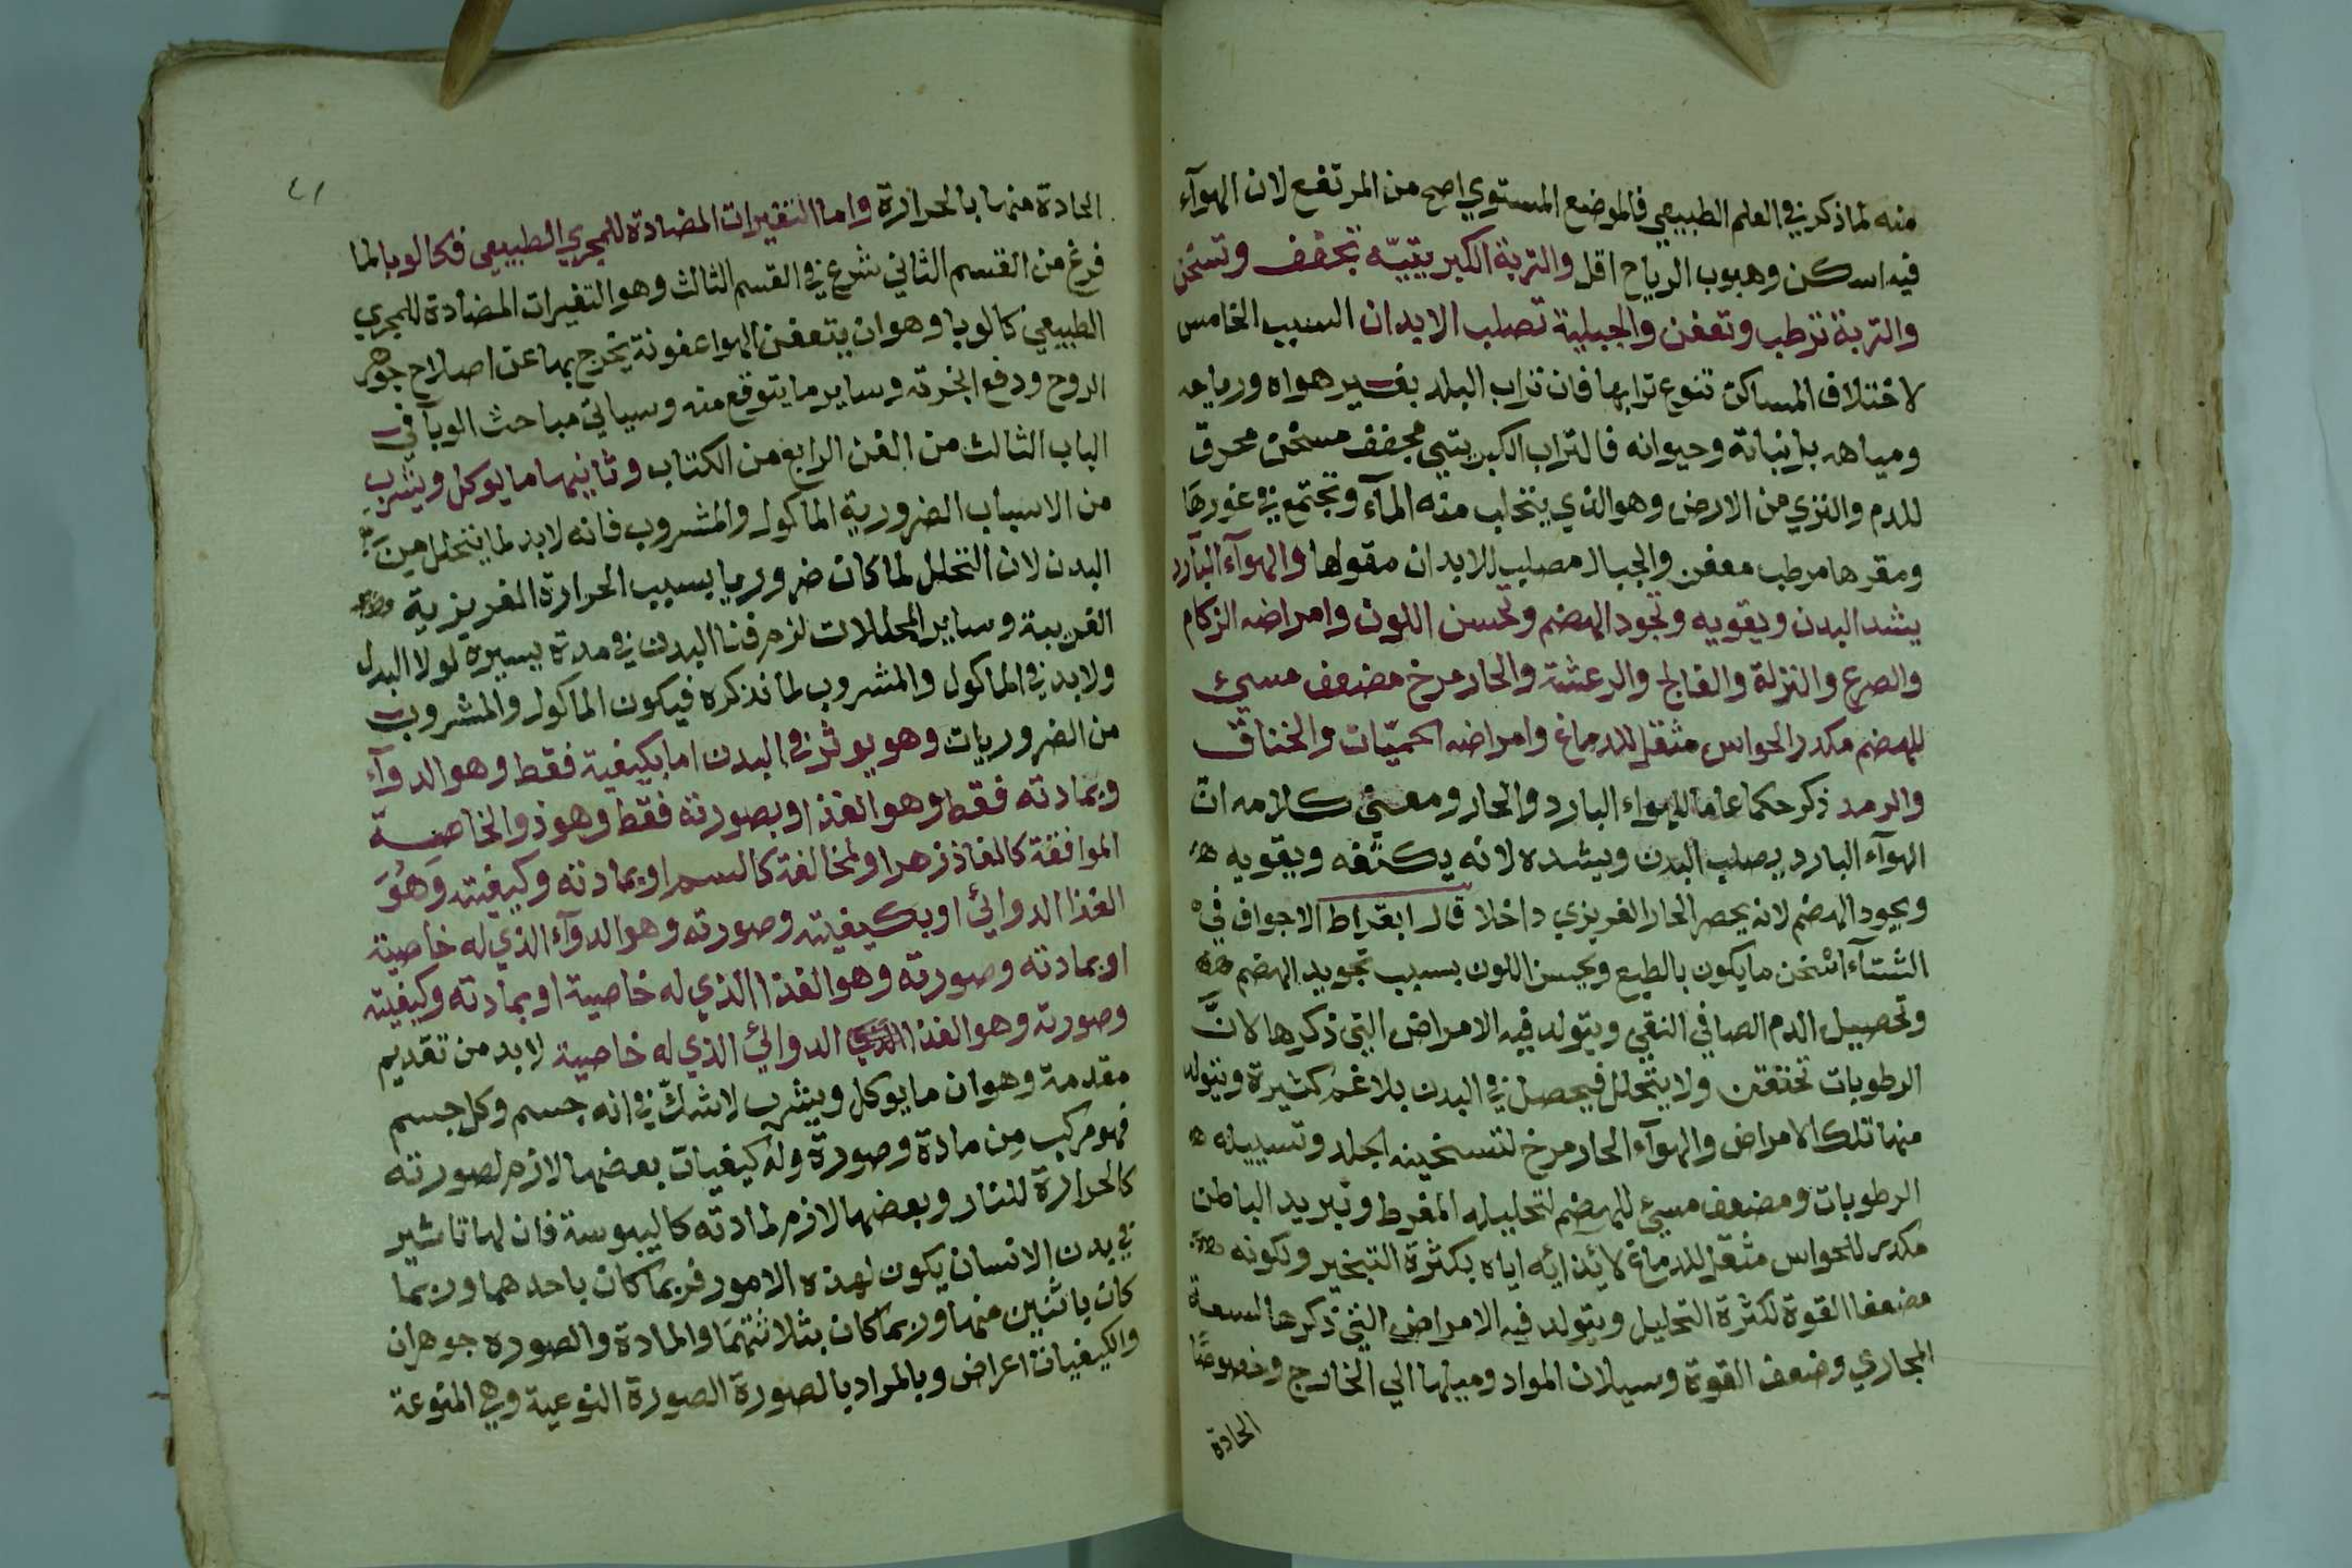 منه لما ذكر في العلم الطبيعي فالموضع المستوي اصح من المرتفع لان الهوآء
فيه اسكن وهبوب الرياح اقل والتربة الكبريتيّه تجفف وتسخن
والتربة ترطب وتعفن والجبلية تصلب الابدان السبب الخامس
لاختلاف المساكن تنوع ترابها فان تراب البلد يغير هواه ورياحه
ومياهه بل نباته وحيوانه فالتراب الكبريتي مجفف مسخن محرق
للدم والنزي من الارض وهو الذي يتحلب منه المآء وتجتمع في غورها
ومقرها مرطب معفن والجبال مصلب للابدان مقولها والهوآء البآرد
يشد البدن ويقويه وتجود الهضم وتحسن اللون وامراضه الزكام
والصرع والنزلة والفالج والرعشة والحار مرخ مضعف مسيء
للهضم مكدر الحواس مثقل للدماغ وامراضه الحميّات والخناق
والرمد ذكر حكما عاما للهواء البارد والحار ومعنى كلامه ان
الهوآء البارد يصلب البدن ويشده لانه يكثفه ويقويه
ويجود الهضم لانه يحصر الحار الغريزي داخلا قال ابقراط الاجواف في
الشتآء اسخن ما يكون بالطبع ويحسن اللون بسبب تجويد الهضم
وتحصيل الدم الصافي النقي ويتولد فيه الامراض التي ذكرها لانَّ
الرطوبات تحتقن ولا يتحلل فيحصل في البدن بلاغم كثيرة ويتولد
منها تلك الامراض والهوآء الحار مرخ لتسخينه الجلد وتسييله
الرطوبات ومضعف مسيء للهضم لتحليله المفرط وتبريد الباطن
مكدر للحواس مثقل للدماغ لايذائه اياه بكثرة التبخير ولكونه
مضعفا القوة لكثرة التحليل ويتولد فيه الامراض التي ذكرها لسعة
المجاري وضعف القوة وسيلان المواد وميلها الي الخارج وخصوصًا
الحادة
٤١
الحادة منها بالحرارة واما التغيرات المضادة للمجري الطبيعي فكالوبا لما
فرغ من القسم الثاني شرع في القسم الثالث وهو التغيرات المضادة للمجري
الطبيعي كالوبا وهو ان يتعفن الهوا عفونة يخرج بها عن اصلاح جوهر
الروح ودفع ابخرته وساير ما يتوقع منه وسياتي مباحث الوبآ في
الباب الثالث من الفن الرابع من الكتاب وثانيها ما يوكل ويشرب
من الاسباب الضرورية الماكول والمشروب فانه لابد لما يتحلل من
البدن لان التحلل لما كان ضروريا بسبب الحرارة الغريزية
الغريبة وساير المحللات لزم فنا البدن في مدة يسيرة لولا البدل
ولابد في الماكول والمشروب لما نذكره فيكون الماكول والمشروب
من الضروريات وهو يوثر في البدن اما بكيفية فقط وهو الدوآء
وبمادته فقط وهو الغذا او بصورته فقط وهو ذو الخاصية
الموافقة كالفاذزهر او المخالفة كالسم او بمادته وكيفيته وهُوَ
الغذا الدوائي او بكيفيته وصورته وهو الدوآء الذي له خاصية
او بمادته وصورته وهو الغذا الذي له خاصية او بمادته وكيفيته
وصورته وهو الغذا الدوائي الذي له خاصية لابد من تقديم
مقدمة وهو ان ما يوكل ويشرب لا شكّ في انه جسم وكل جسم
فهو مركب مِن مادة وصورة وله كيفيات بعضها لازم لصورته
كالحرارة للنار وبعضها لازم لمادته كاليبوسة فان لها تاثير
في بدن الانسان يكون لهذه الامور فربما كان باحدهما وربما
كان باثنين منها وربما كان بثلاثتهما والمادة والصوره جوهران
والكيفيات اعراض وبالمراد بالصورة الصورة النوعية وهي المنوعة